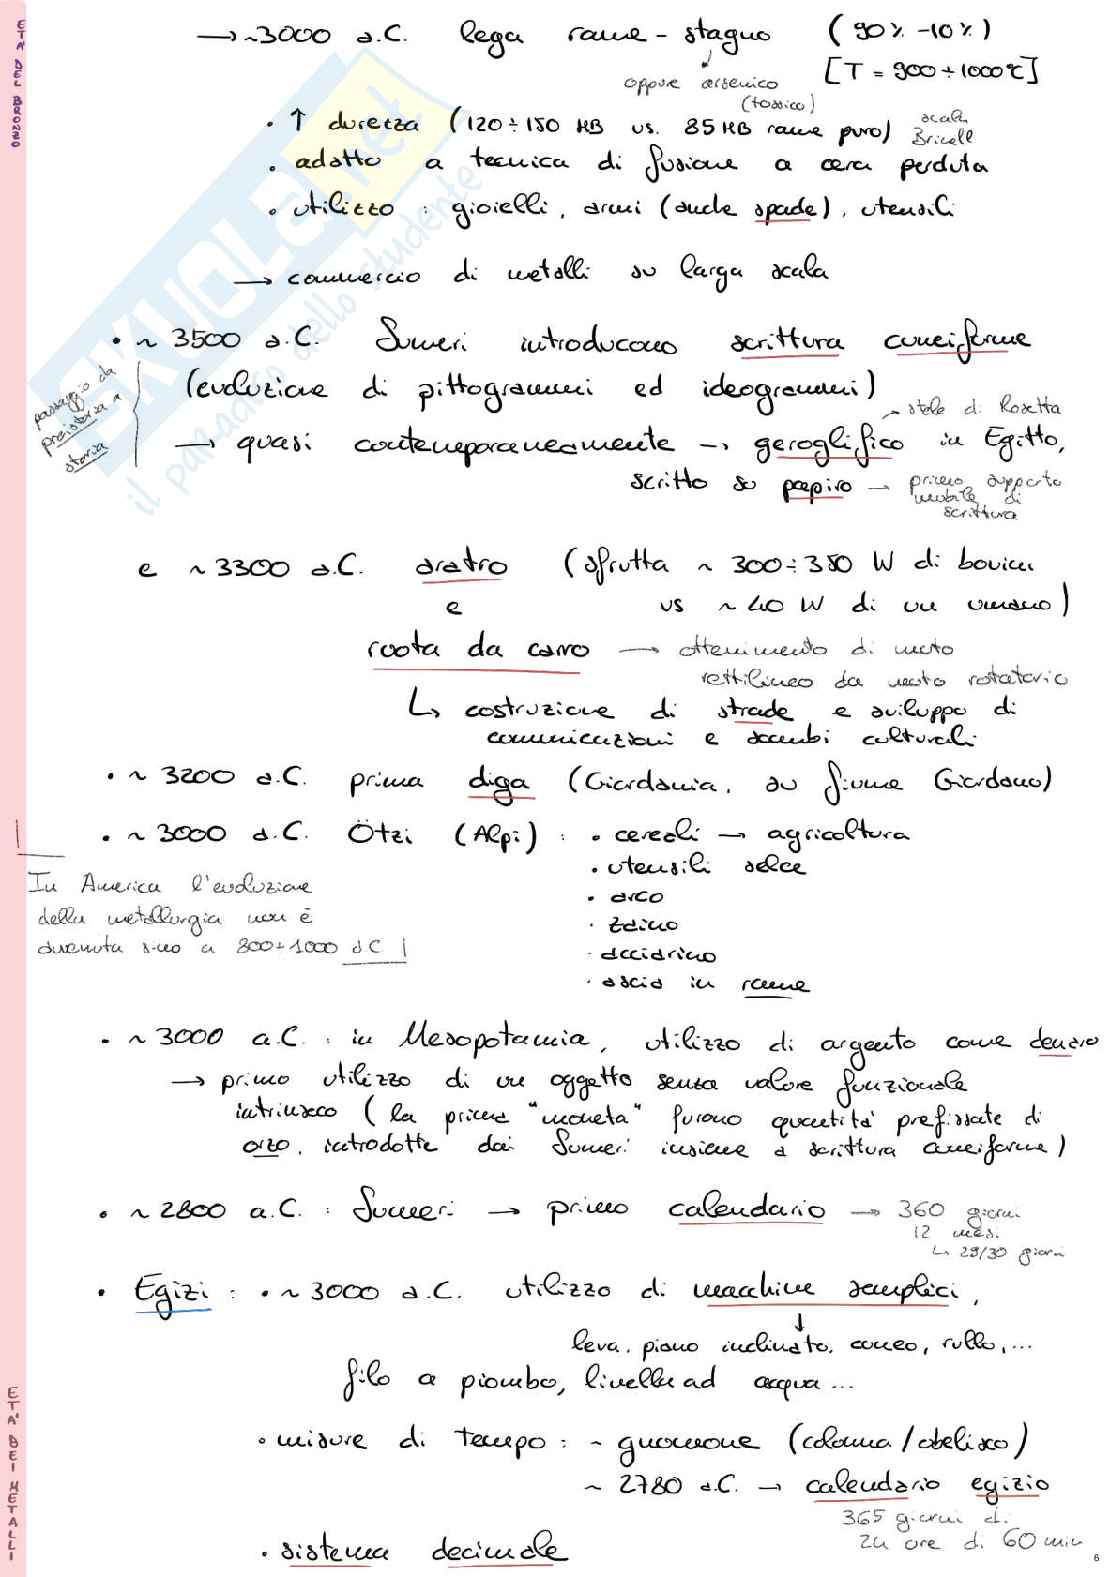 ETÀ DEL BRONZO
→ ~3000 a.C. lega rame - stagno (90% - 10%)
oppure arsenico (tossico) [T = 900 ÷ 1000°C]
• ↑ durezza (120÷150 HB vs. 85 HB rame puro) scala Brinell
• adatto a tecnica di fusione a cera perduta
• utilizzo : gioielli, armi (anche spade), utensili
→ commercio di metalli su larga scala
• ~ 3500 a.C. Sumeri introducono scrittura cuneiforme
(evoluzione di pittogrammi ed ideogrammi)
passaggio da
preistoria a
storia
~ stele di Rosetta
→ quasi contemporaneamente → geroglifico in Egitto,
scritto su papiro → primo supporto
mobile di
scrittura
e ~3300 a.C. aratro (sfrutta ~ 300÷350 W di bovini
e vs ~ 40 W di un umano)
ruota da carro → ottenimento di moto
rettilineo da moto rotatorio
↳ costruzione di strade e sviluppo di
comunicazioni e scambi culturali
• ~ 3200 a.C. prima diga (Giordania, su fiume Giordano)
• ~ 3000 a.C. Ötzi (Alpi) : • cereali → agricoltura
• utensili selce
• arco
• zaino
• acciarino
• ascia in rame
In America l'evoluzione
della metallurgia non è
avvenuta sino a 800÷1000 d.C
• ~ 3000 a.C. : in Mesopotamia, utilizzo di argento come denaro
→ primo utilizzo di un oggetto senza valore funzionale
intrinseco (la prima "moneta" furono quantità prefissate di
orzo, introdotte dai Sumeri insieme a scrittura cuneiforme)
• ~ 2800 a.C. : Sumeri → primo calendario → 360 giorni
12 mesi
↳ 29/30 giorni
• Egizi : • ~ 3000 a.C. utilizzo di macchine semplici,
↓
leva, piano inclinato, cuneo, rullo, ...
filo a piombo, livella ad acqua ...
• misure di tempo : ~ gnomone (colonna / obelisco)
~ 2780 a.C. → calendario egizio
365 giorni di
24 ore di 60 min
• sistema decimale
ETÀ DEI METALLI
SKUOLA.net
il paradiso dello studente
6